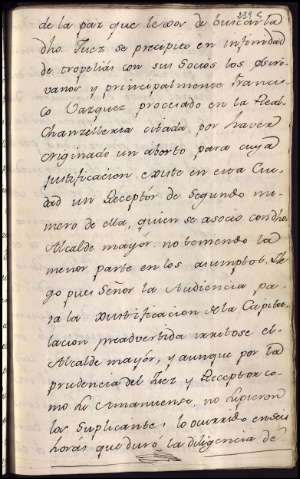 de la paz que lexos de buscarla
dho. Juez se precipito en infinidad
de tropelias con sus Socios los
y principalmente Francis
co Vazquez procesado en la Real
Chanzelleria citada por haver
originado un aborto para cuya
justificacion existe en esta Ciu
dad un Receptor de Segundo nu
mero de ella, quien se asocio con dho.
Alcalde mayor no teniendo la
menor parte en los asumptos. Lle
go pues Señor la Audiencia pa
ra la Justificacion de la Capitu
lacion preadvertida el
Alcalde mayor, y aunque por la
prudencia del Juez y Receptor co
mo su Amanuense, no supieron
los Suplicantes lo ocurrido en seis
horas que duró la diligencia de